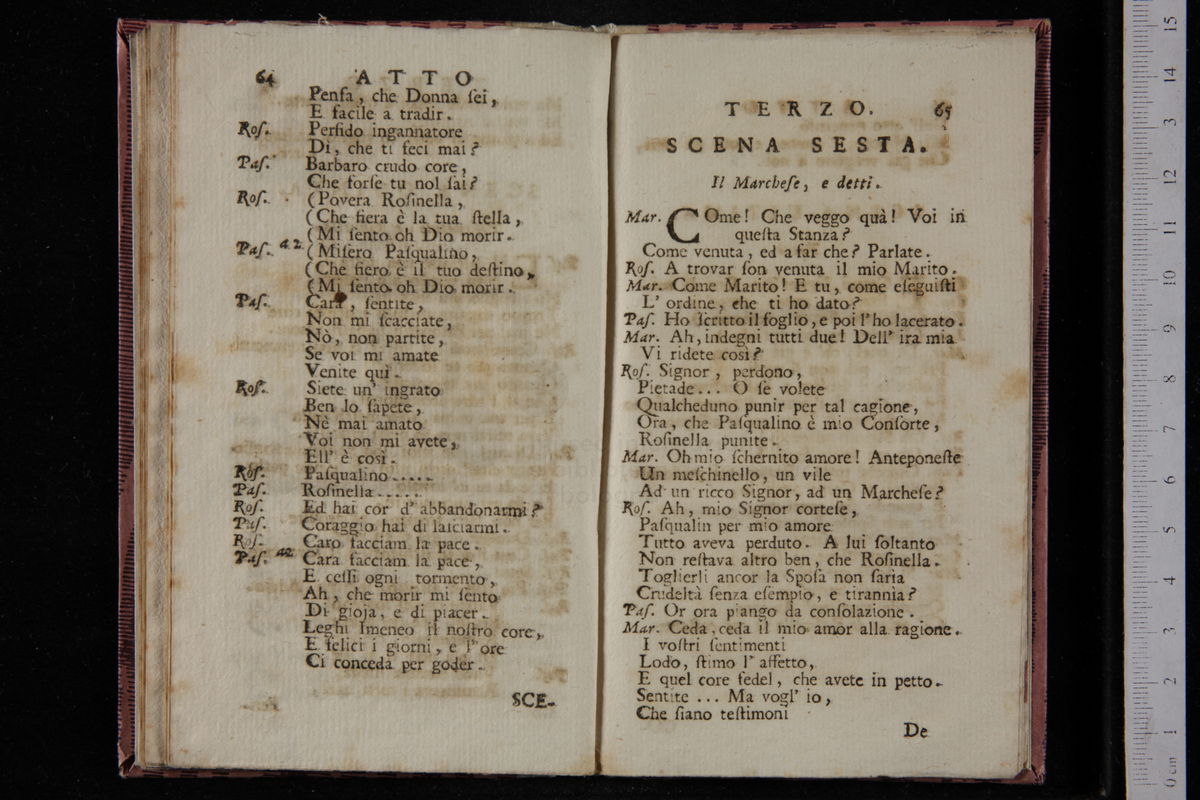 64 ATTO
Penſa, che Donna ſei,
E facile a tradir.
Roſ. Perfido ingannatore
Di, che ti feci mai?
Paſ. Barbaro crudo core,
Che forſe tu nol ſai?
Roſ. (Povera Roſinella,
(Che fiera è la tua ſtella,
(Mi ſento oh Dio morir.
Paſ. a 2. (Miſero Paſqualino,
(Che fiero è il tuo deſtino,
(Mi ſento oh Dio morir.
Paſ. Cara, ſentite,
Non mi ſcacciate,
Nò, non partite,
Se voi mi amate
Venite quì.
Roſ. Siete un' ingrato
Ben lo ſapete,
Nè mai amato
Voi non mi avete,
Ell' è così.
Roſ. Paſqualino.....
Paſ. Roſinella.....
Roſ. Ed hai cor d' abbandonarmi?
Paſ. Coraggio hai di laſciarmi.
Roſ. Caro facciam la pace.
Paſ. a2. Cara facciam la pace,
E ceſſi ogni tormento,
Ah, che morir mi ſento
Di gioja, e di piacer.
Leghi Imeneo il noſtro core,
E felici i giorni, e l' ore
Ci conceda per goder.
SCE-
TERZO. 65
SCENA SESTA.
Il Marcheſe, e detti.
Mar. COme! Che veggo quà! Voi in
queſta Stanza?
Come venuta, ed a far che? Parlate.
Roſ. A trovar ſon venuta il mio Marito.
Mar. Come Marito! E tu, come eſeguiſti
L' ordine, che ti ho dato?
Paſ. Ho ſcritto il foglio, e poi l' ho lacerato.
Mar. Ah, indegni tutti due! Dell' ira mia
Vi ridete così?
Roſ. Signor, perdono,
Pietade... O ſe volete
Qualcheduno punir per tal cagione,
Ora, che Paſqualino è mio Conſorte,
Roſinella punite.
Mar. Oh mio ſchernito amore! Anteponeſte
Un meſchinello, un vile
Ad un ricco Signor, ad un Marcheſe?
Roſ. Ah, mio Signor corteſe,
Paſqualin per mio amore
Tutto aveva perduto. A lui ſoltanto
Non reſtava altro ben, che Roſinella.
Toglierli ancor la Spoſa non ſaria
Crudeltà ſenza eſempio, e tirannia?
Paſ. Or ora piango da conſolazione.
Mar. Ceda, ceda il mio amor alla ragione.
I voſtri ſentimenti
Lodo, ſtimo l' affetto,
E quel core fedel, che avete in petto.
Sentite ... Ma vogl' io,
Che ſiano teſtimoni
De
15
14
13
12
11
10
9
8
7
6
5
4
3
2
1
0 cm